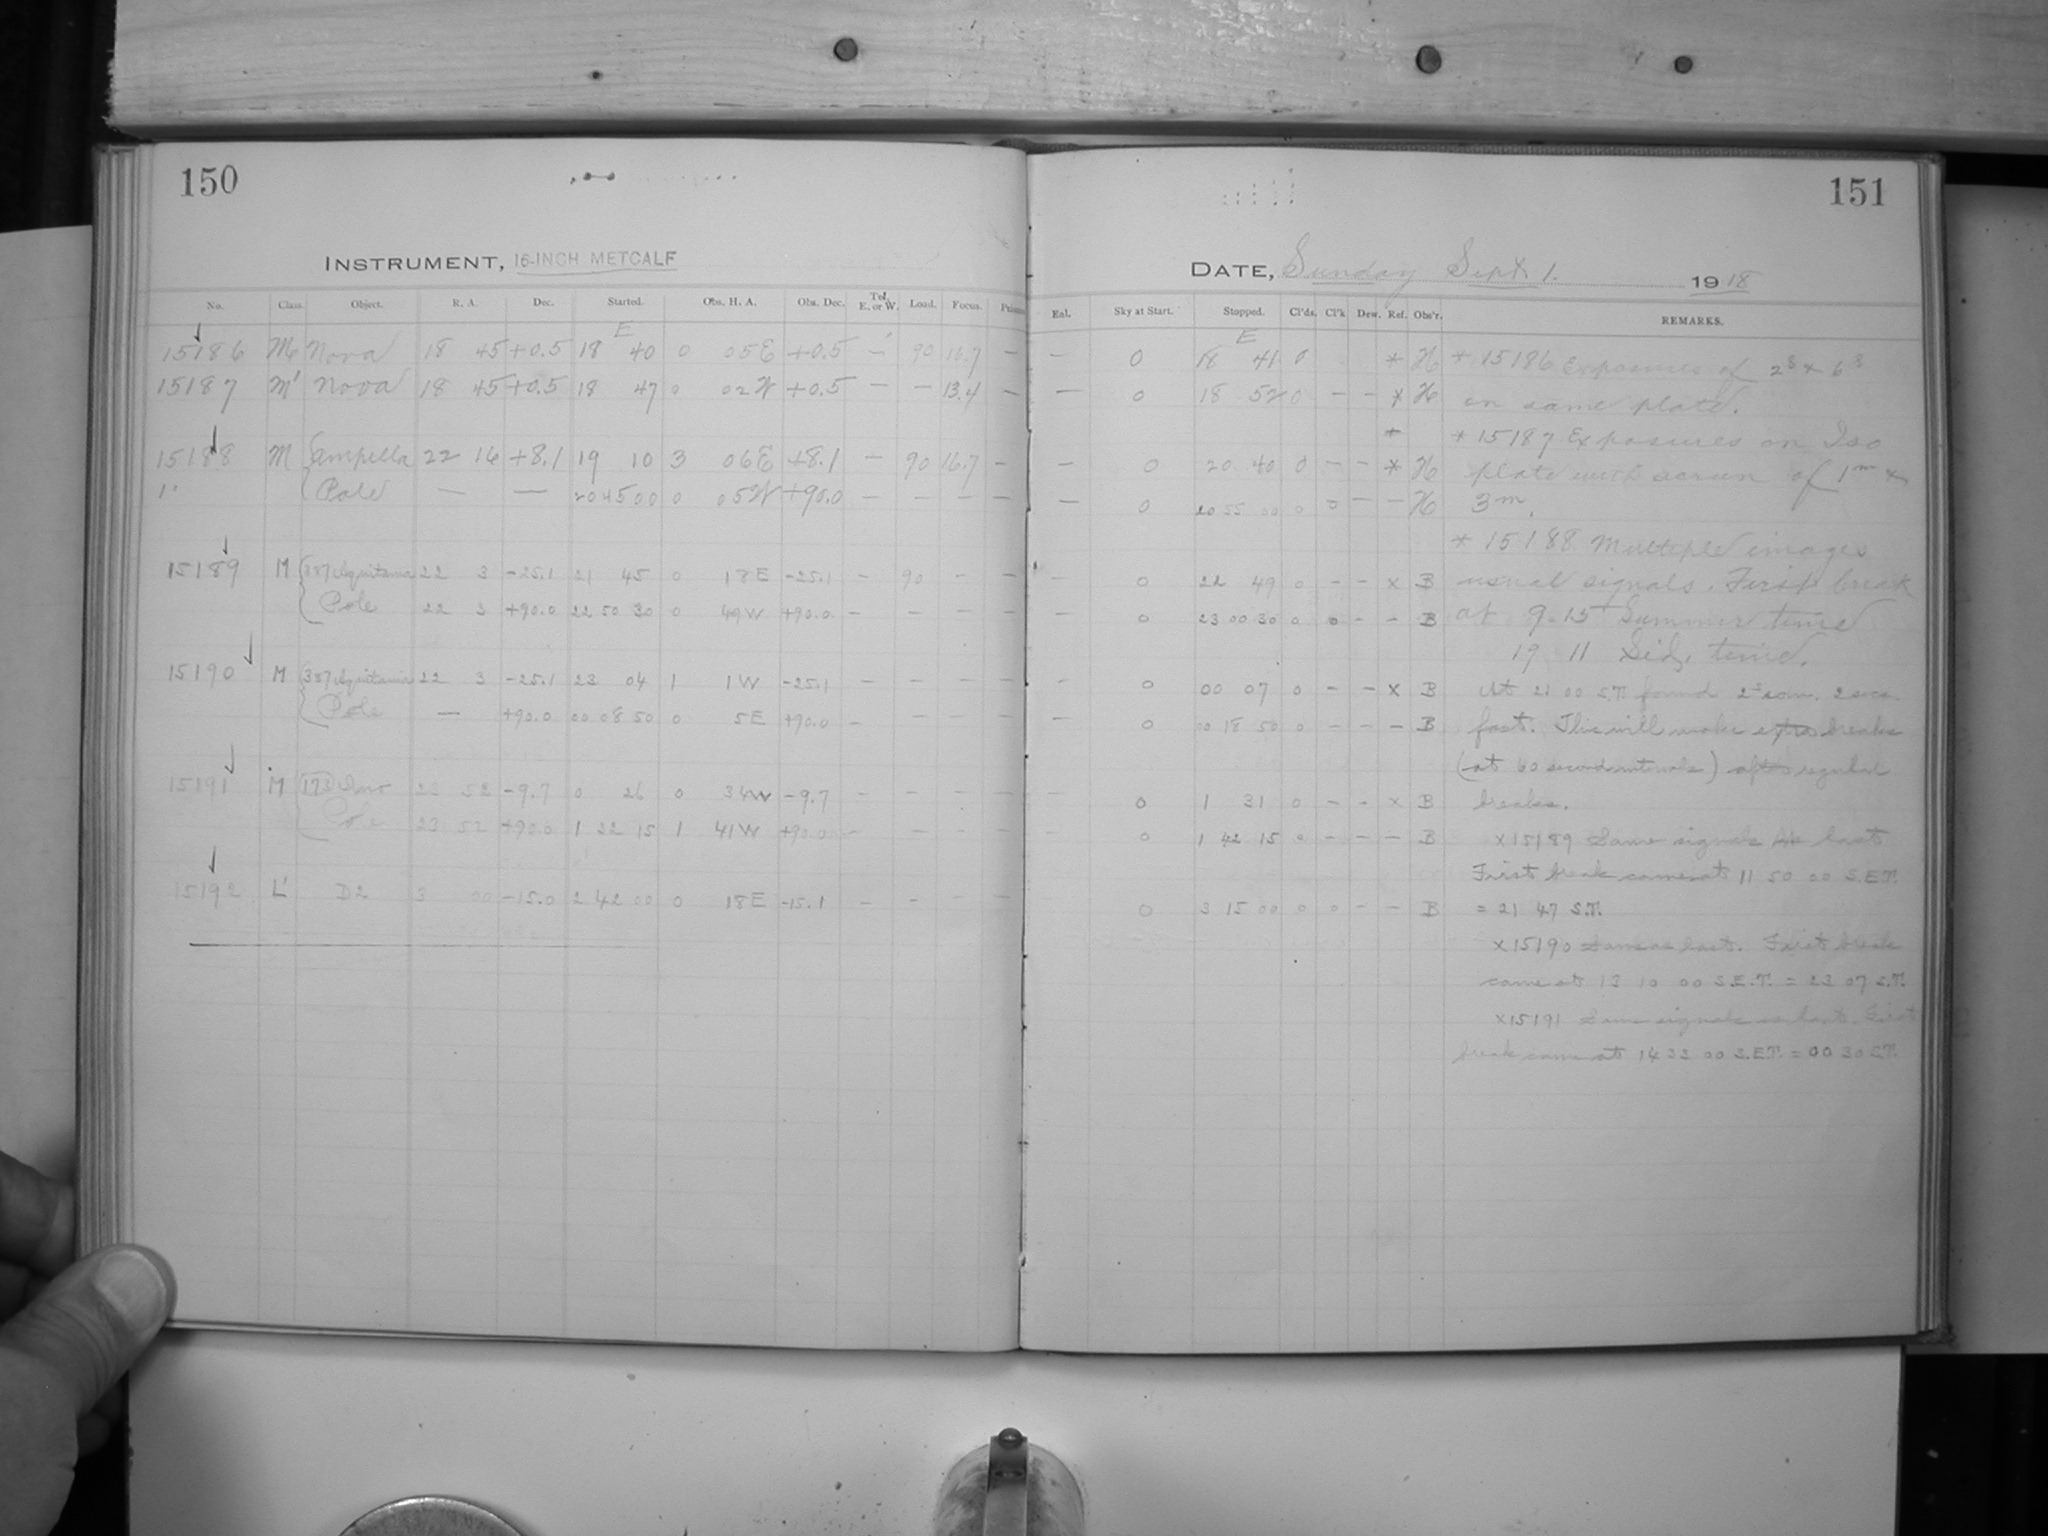 150
INSTRUMENT, 16-INCH METCALF
No. Class. Object. R. A. Dec. Started. Obs. H. A. Obs. Dec. Tel. E. or W. Load. Focus.
E
15186 Mc Nova 18 45 +0.5 18 40 0 05E +0.5 — 90 16.7 —
15187 M' Nova 18 45 +0.5 18 47 0 02W +0.5 — — 13.4 —
15188 M Lampella 22 16 +8.1 19 10 3 06E +8.1 — 90 16.7 —
Pole — — 20 45 00 0 05W +90.0 — — — —
15189 M 387 Aquitania 22 3 -25.1 21 45 0 18E -25.1 - 90 - -
Pole 22 3 +90.0 22 50 30 0 49W +90.0 - - - -
15190 M 387 Aquitania 22 3 -25.1 23 04 1 1W -25.1 - - - -
Pole — +90.0 00 08 50 0 5E +90.0 - - - -
15191 M 173 Ino 23 52 -9.7 0 26 0 34W -9.7 - - - -
Pole 23 52 +90.0 1 22 15 1 41W +90.0 - - - -
15192 L' D2 3 00 -15.0 2 42 00 0 18E -15.1 - - - -
151
DATE, Sunday Sept 1. 1918
Enl. Sky at Start. Stopped. Cl'ds. Cl'k Dew. Ref. Obs'r. REMARKS.
E
— 0 18 41 0 * H * 15186 Exposures of 2s & 6s
— 0 18 52 0 - - * H on same plate.
* * 15187 Exposures on Iso
— 0 20 40 0 - - * H plate with screen of 1m &
— 0 20 55 00 0 0 - - H 3m.
* 15188 Multiple images
- 0 22 49 0 - - x B usual signals. First break
- 0 23 00 30 0 0 - - B at 9.15 Summer time
19 11 Sid. time.
- 0 00 07 0 - - x B At 21 00 S.T. found 2s com. 2 secs.
- 0 00 18 50 0 - - - B fast. This will make extra breaks
(at 60 second intervals) after regular
- 0 1 31 0 - - x B breaks.
- 0 1 42 15 0 - - - B x15189 Same signals as last
First break came at 11 50 00 S.E.T.
0 3 15 00 0 0 - - B = 21 47 S.T.
x15190 Same as last. First break
came at 13 10 00 S.E.T. = 23 07 S.T.
x15191 Same signals as last. First
break came at 14 33 00 S.E.T. = 00 30 S.T.